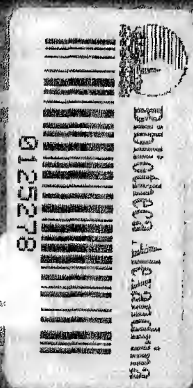 Bibliotheca Alexandrina
0125278